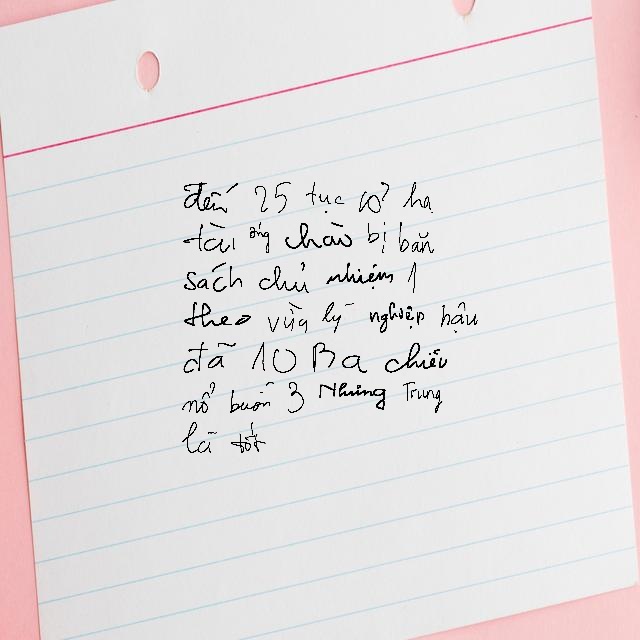 đến 25 tục cơ hạ
tài ông chào bị bắn
sách chủ nhiệm 1
theo vừa lý nghiệp hậu
đã 10 Ba chiếu
nổ buồn 3 Nhưng Trung
là tốt